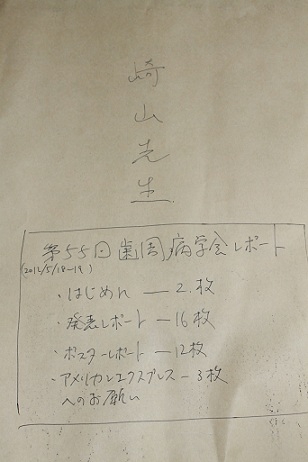 崎山先生
第55回歯周病学会レポート
(2012/5/18-19)
・はじめに ― 2枚
・発表レポート ― 16枚
・ポスターレポート ― 12枚
・アメリカンエクスプレス ― 3枚
へのお願い